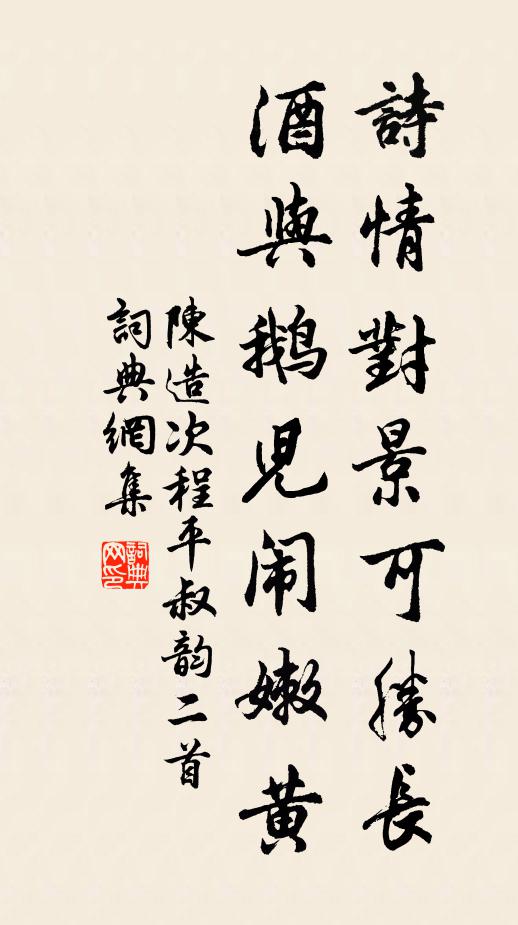 詩情對景可勝長
酒與鵝兒闹嫩黃
陳造次程平叔韵二首
詞典網集
詞典网印